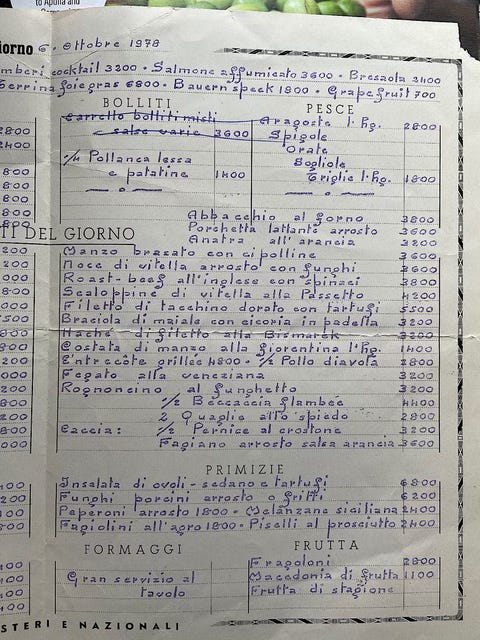 to Apulia and
iorno 6. Ottobre 1978
mberi cocktail 3200 - Salmone affumicato 3600 - Bresaola 2400
Terrina foie gras 6800 - Bauernspeck 1800 - Grapefruit 700
BOLLITI
PESCE
Carrello bolliti misti
salse varie 3600
¼ Pollanca lessa
e patatine 1400
Aragosta l'Hg. 2800
Spigole
Orate
Sogliole
Triglie l'Hg. 1800
2800
2400
800
800
800
800
800
Abbacchio al forno 3800
Porchetta lattante arrosto 3600
Anatra all'arancia 3200
TI DEL GIORNO
200 Manzo brasato con cipolline 3600
000 Noce di vitella arrosto con funghi 3600
000 Roast-beef all'inglese con spinaci 3800
800 Scaloppine di vitella alla Passetto 4200
000 Filetto di tacchino dorato con tartufi 5500
500 Braciola di maiale con cicoria in padella 3200
800 Haché di filetto alla Bismarck 3200
000 Costata di manzo alla fiorentina l'Hg. 1400
200 Entrecôte grillée 4800 - ½ Pollo diavola 2800
000 Fegato alla veneziana 3200
200 Rognoncino al funghetto 3200
800 ½ Beccaccia flambée 4400
800 2 Quaglie allo spiedo 2800
200 Caccia: ½ Pernice al crostone 3200
000 Fagiano arrosto salsa arancia 3600
PRIMIZIE
400 Insalata di ovoli - sedano e tartufi 6800
200 Funghi porcini arrosto o fritti 6200
400 Peperoni arrosto 1800 - Melanzane siciliana 2400
500 Fagiolini all'agro 1800 - Piselli al prosciutto 2400
FORMAGGI
FRUTTA
Gran servizio al
tavolo
Fragoloni 2800
Macedonia di frutta 1100
Frutta di stagione
400
400
400
400
STERI E NAZIONALI